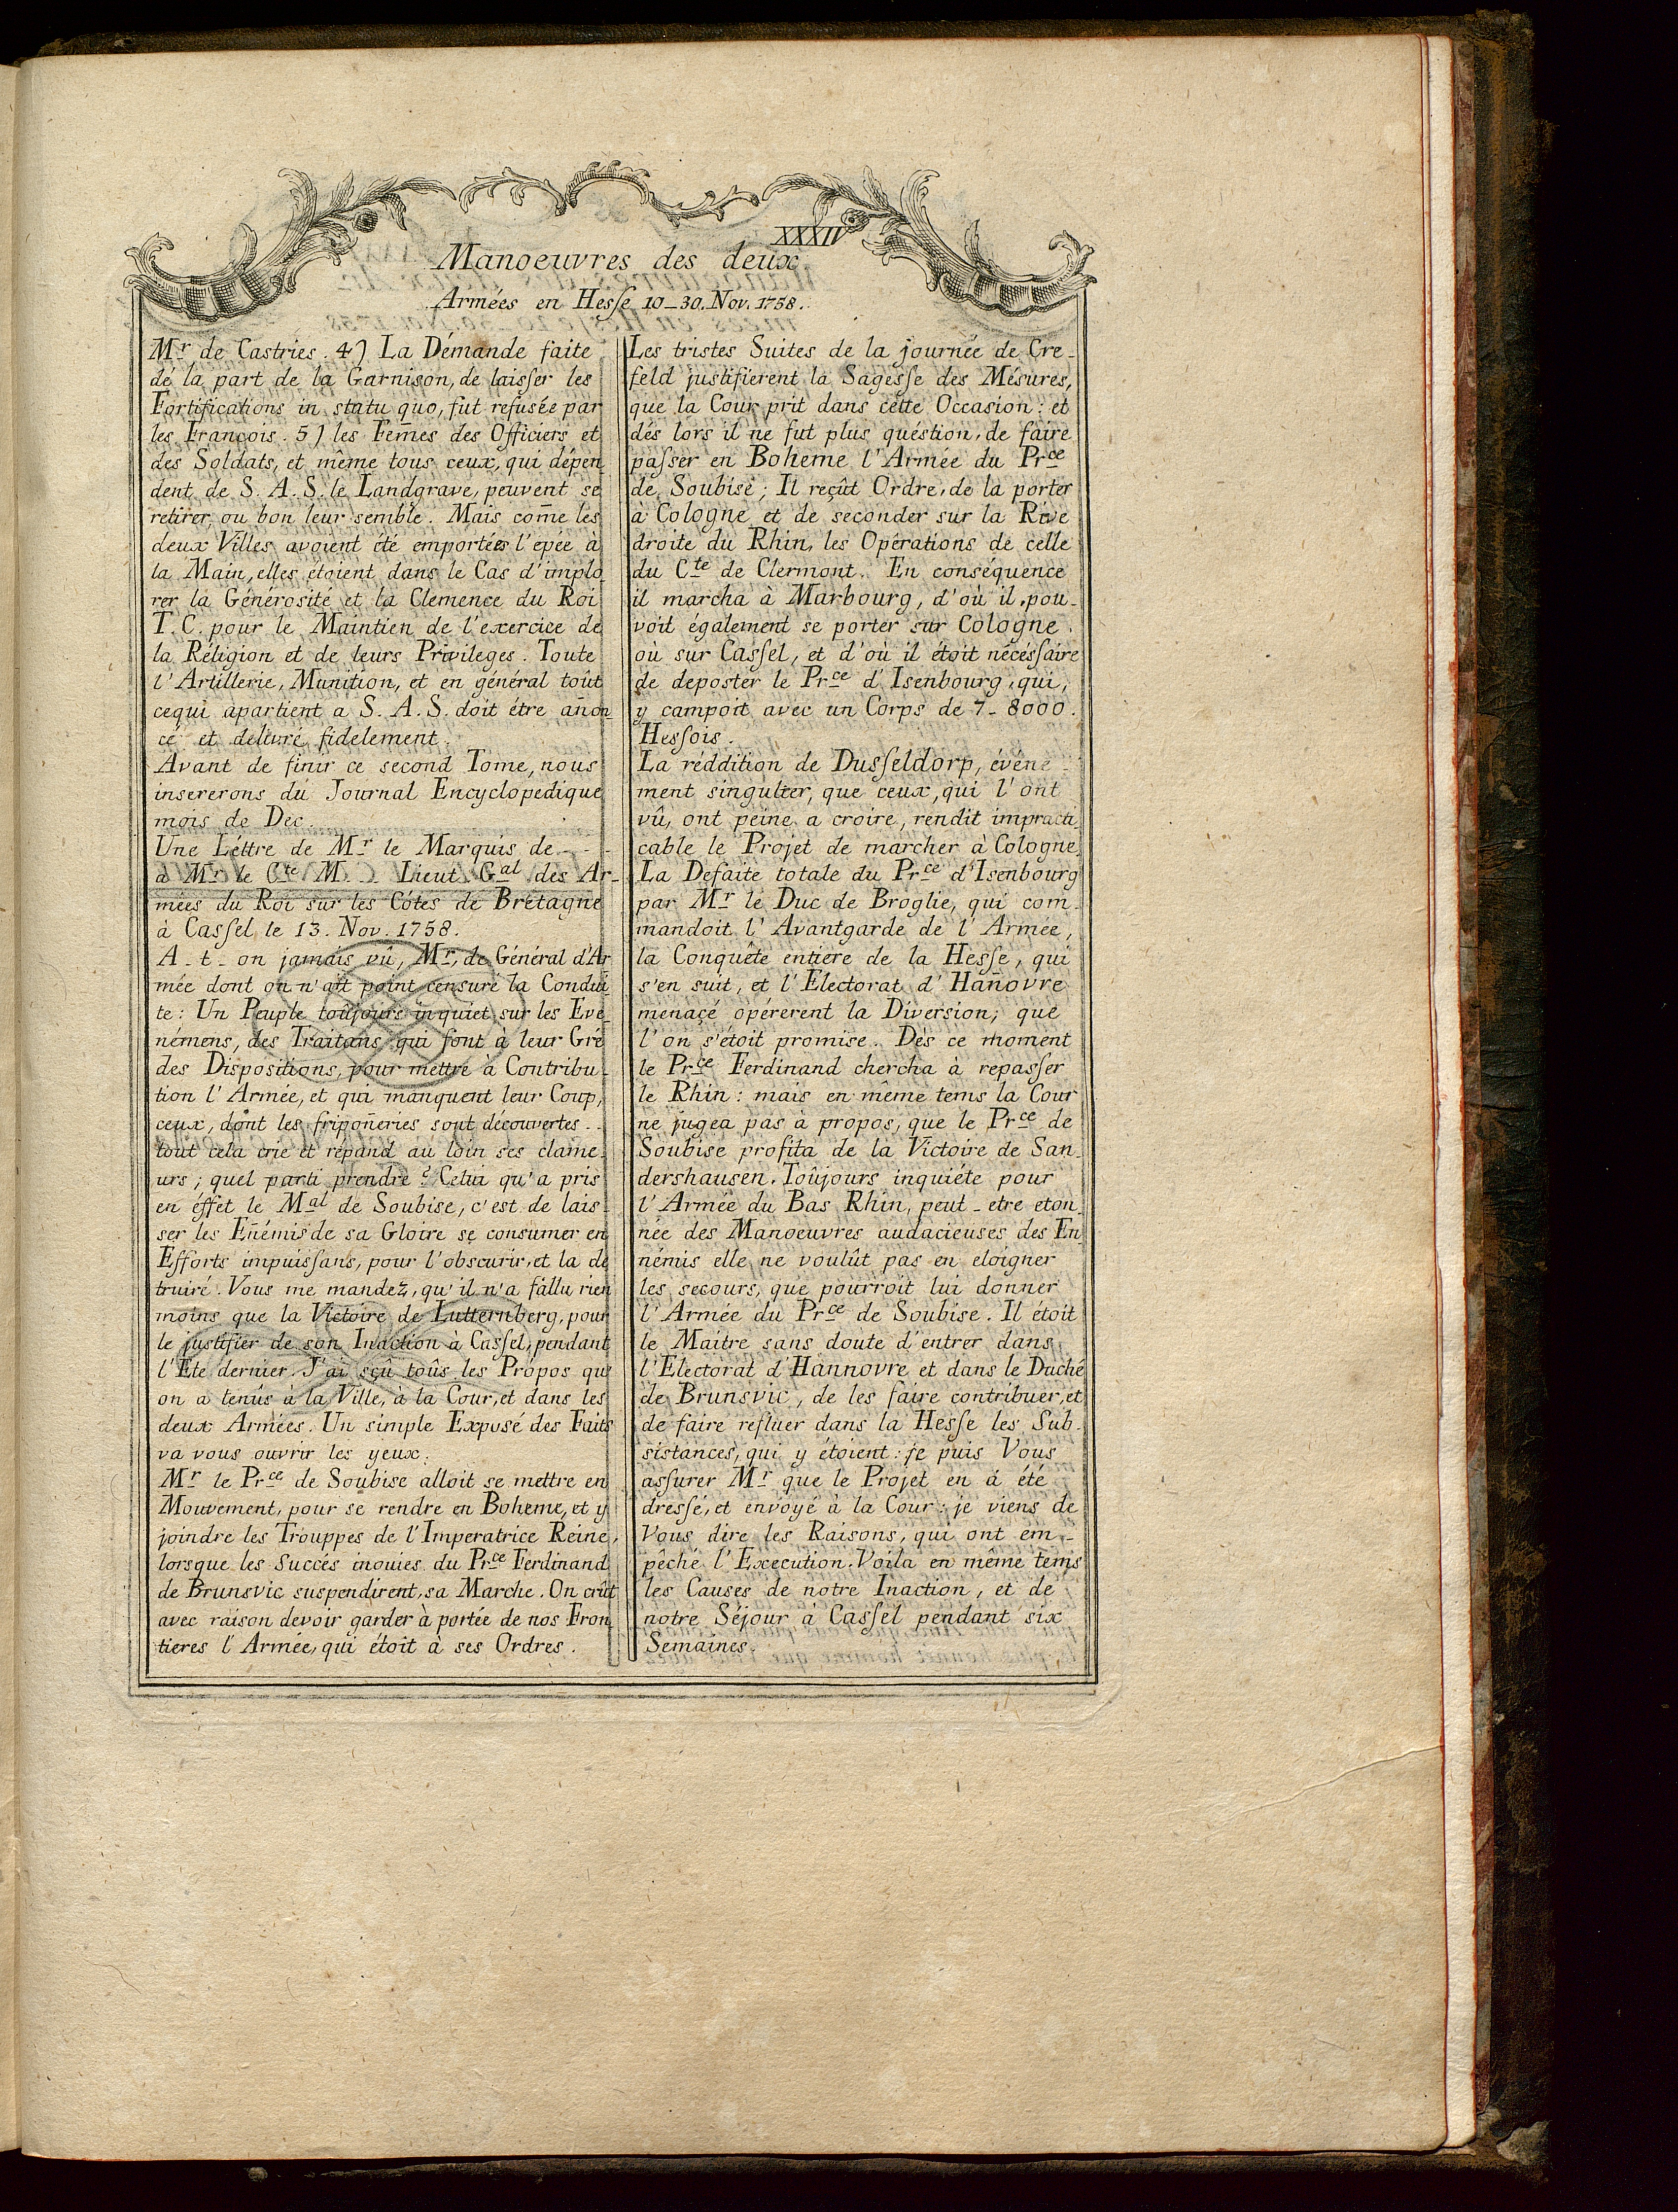 XXXIV
Manoeuvres des deux
Armées en Hesse 10_30. Nov. 1758.
Mr de Castries. 4) La Démande faite
de la part de la Garnison, de laisser les
Fortifications in statu quo, fut refusée par
les François. 5) les Fem̄es des Officiers et
des Soldats, et même tous ceux, qui dépen
dent de S. A. S. le Landgrave, peuvent se
retirer, ou bon leur semble. Mais com̄e les
deux Villes avoient été emportées l'epée à
la Main, elles étoient dans le Cas d'implo
rer la Générosité et la Clemence du Roi
T. C. pour le Maintien de l'exercice de
la Réligion et de leurs Privileges. Toute
l'Artillerie, Munition, et en général tout
cequi apartient a S. A. S. doit étre an̄on_
cé et delivré fidelement.
Avant de finir ce second Tome, nous
insererons du Journal Encyclopedique
mois de Dec.
Une Léttre de Mr le Marquis de - - -
à Mr le Cte M. - - Lieut. Gal des Ar_
mées du Roi sur les Côtes de Brétagne
à Cassel le 13. Nov. 1758.
A_t_on jamais vû, Mr, de Général d'Ar
mée dont on n'ait point censuré la Condui
te: Un Peuple toûjours inquiet sur les Evé_
némens, des Traitans qui font à leur Gré
des Dispositions, pour mettre à Contribu_
tion l'Armée, et qui manquent leur Coup,
ceux, dont les fripon̄eries sont découvertes..
tout cela crie et répand au loin ses clame_
urs; quel parti prendre? Celui qu'a pris
en éffet le Mal de Soubise, c'est de lais_
ser les En̄émis de sa Gloire se consumer en
Efforts impuissans, pour l'obscurir, et la dé
truire. Vous me mandez, qu'il n'a fallu rien
moins que la Victoire de Lutternberg, pour
le justifier de son Inaction à Cassel, pendant
l'Eté dernier. J'ai sçû toûs les Propos que
on a tenûs à la Ville, à la Cour, et dans les
deux Armées. Un simple Exposé des Faits
va vous ouvrir les yeux.
Mr le Prce de Soubise alloit se mettre en
Mouvement, pour se rendre en Boheme, et y
joindre les Trouppes de l'Imperatrice Reine,
lorsque les Succés inouies du Prce Ferdinand
de Brunsvic suspendirent sa Marche. On crût
avec raison devoir garder à portée de nos Fron
tieres l'Armée, qui étoit à ses Ordres.
Les tristes Suites de la journée de Cre_
feld justifiérent la Sagesse des Mésures,
que la Cour prit dans cette Occasion: et
dés lors il ne fut plus quéstion, de faire
passer en Boheme l'Armée du Prce
de Soubise; Il reçût Ordre, de la porter
à Cologne et de seconder sur la Rive
droite du Rhin, les Opérations de celle
du Cte de Clermont. En conséquence
il marcha à Marbourg, d'où il pou_
voit également se porter sur Cologne
où sur Cassel, et d'où il étoit nécéssaire
de deposter le Prce d'Isenbourg, qui,
y campoit avec un Corps de 7_8000.
Hessois.
La réddition de Dusseldorp, événe_
ment singulier, que ceux, qui l'ont
vû, ont peine a croire, rendit impracti_
cable le Projet de marcher à Cologne.
La Defaite totale du Prce d'Isenbourg
par Mr le Duc de Broglie, qui com_
mandoit l'Avantgarde de l'Armée,
la Conquête entiere de la Hesse, qui
s'en suit, et l'Electorat d'Han̄ovre
menaçé opérerent la Diversion, que
l'on s'étoit promise. Dès ce moment
le Prce Ferdinand chercha à repasser
le Rhin: mais en même tems la Cour
ne jugea pas à propos, que le Prce de
Soubise profita de la Victoire de San_
dershausen. Toûjours inquiéte pour
l'Armée du Bas Rhin, peut_etre eton_
née des Manoeuvres audacieuses des En_
némis elle ne voulût pas en eloigner
les secours, que pourroit lui donner
l'Armée du Prce de Soubise. Il étoit
le Maitre sans doute d'entrer dans
l'Electorat d'Hannovre et dans le Duché
de Brunsvic, de les faire contribuer, et
de faire refluer dans la Hesse les Sub_
sistances, qui y étoient: je puis Vous
assurer Mr que le Projet en á été
dressé, et envoyé à la Cour: je viens de
Vous dire les Raisons, qui ont em_
pêché l'Execution. Voila en même tems
les Causes de notre Inaction, et de
notre Séjour à Cassel pendant six
Semaines.